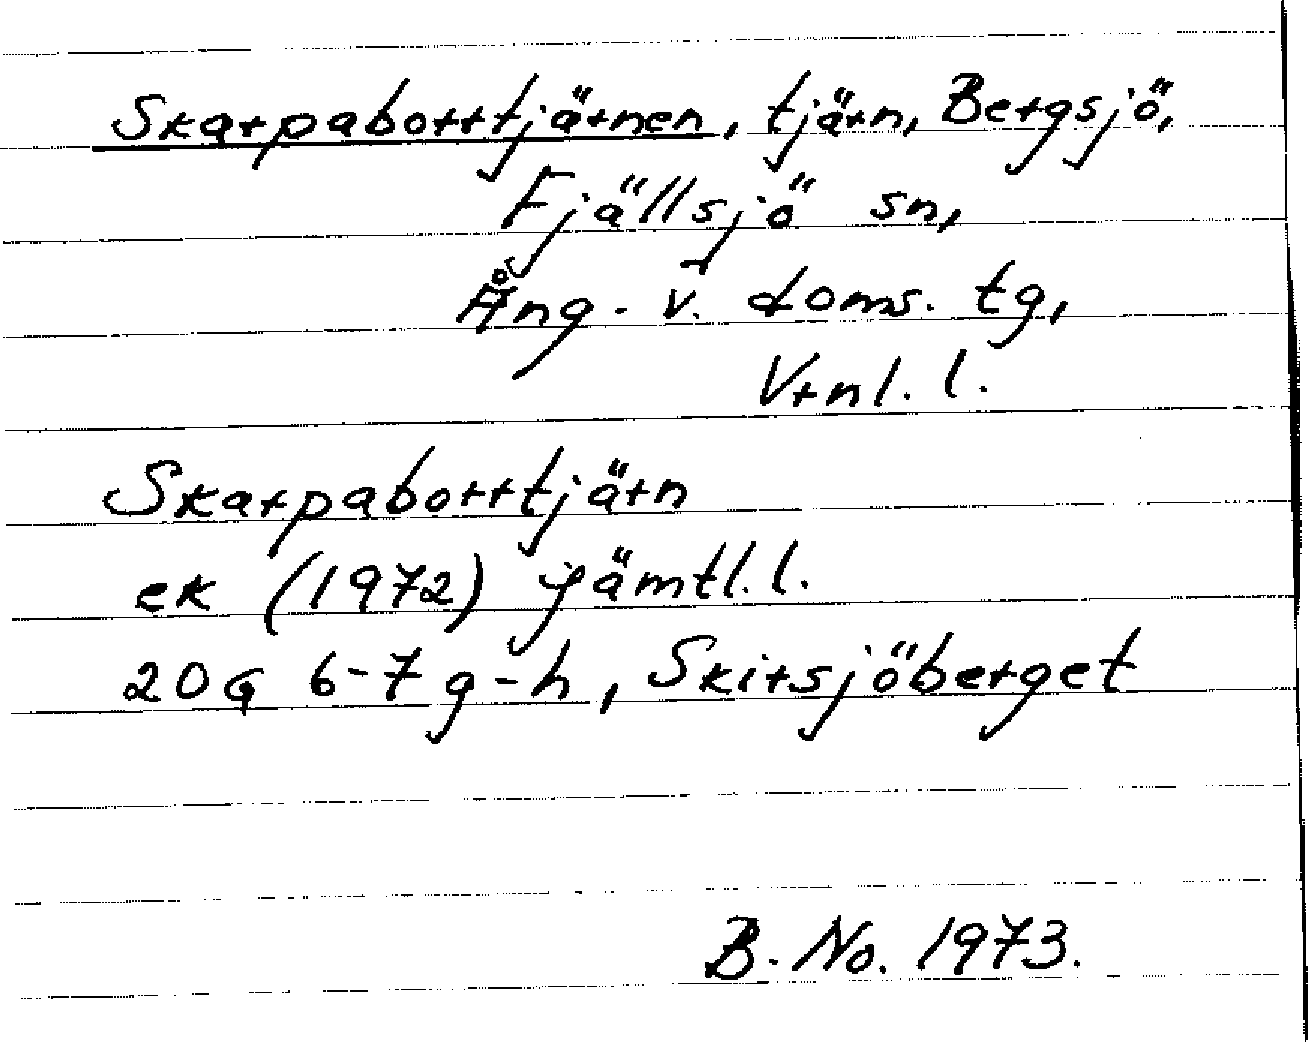 Skarpaborrtjärnen, tjärn, Bergsjö,
Fjällsjö sn,
Ång. v. doms. tg,
Vrnl. l.
Skarpaborrtjärn
ek (1972) Jämtl. l.
20G 6-7 g-h, Skirsjöberget
B. No. 1973.